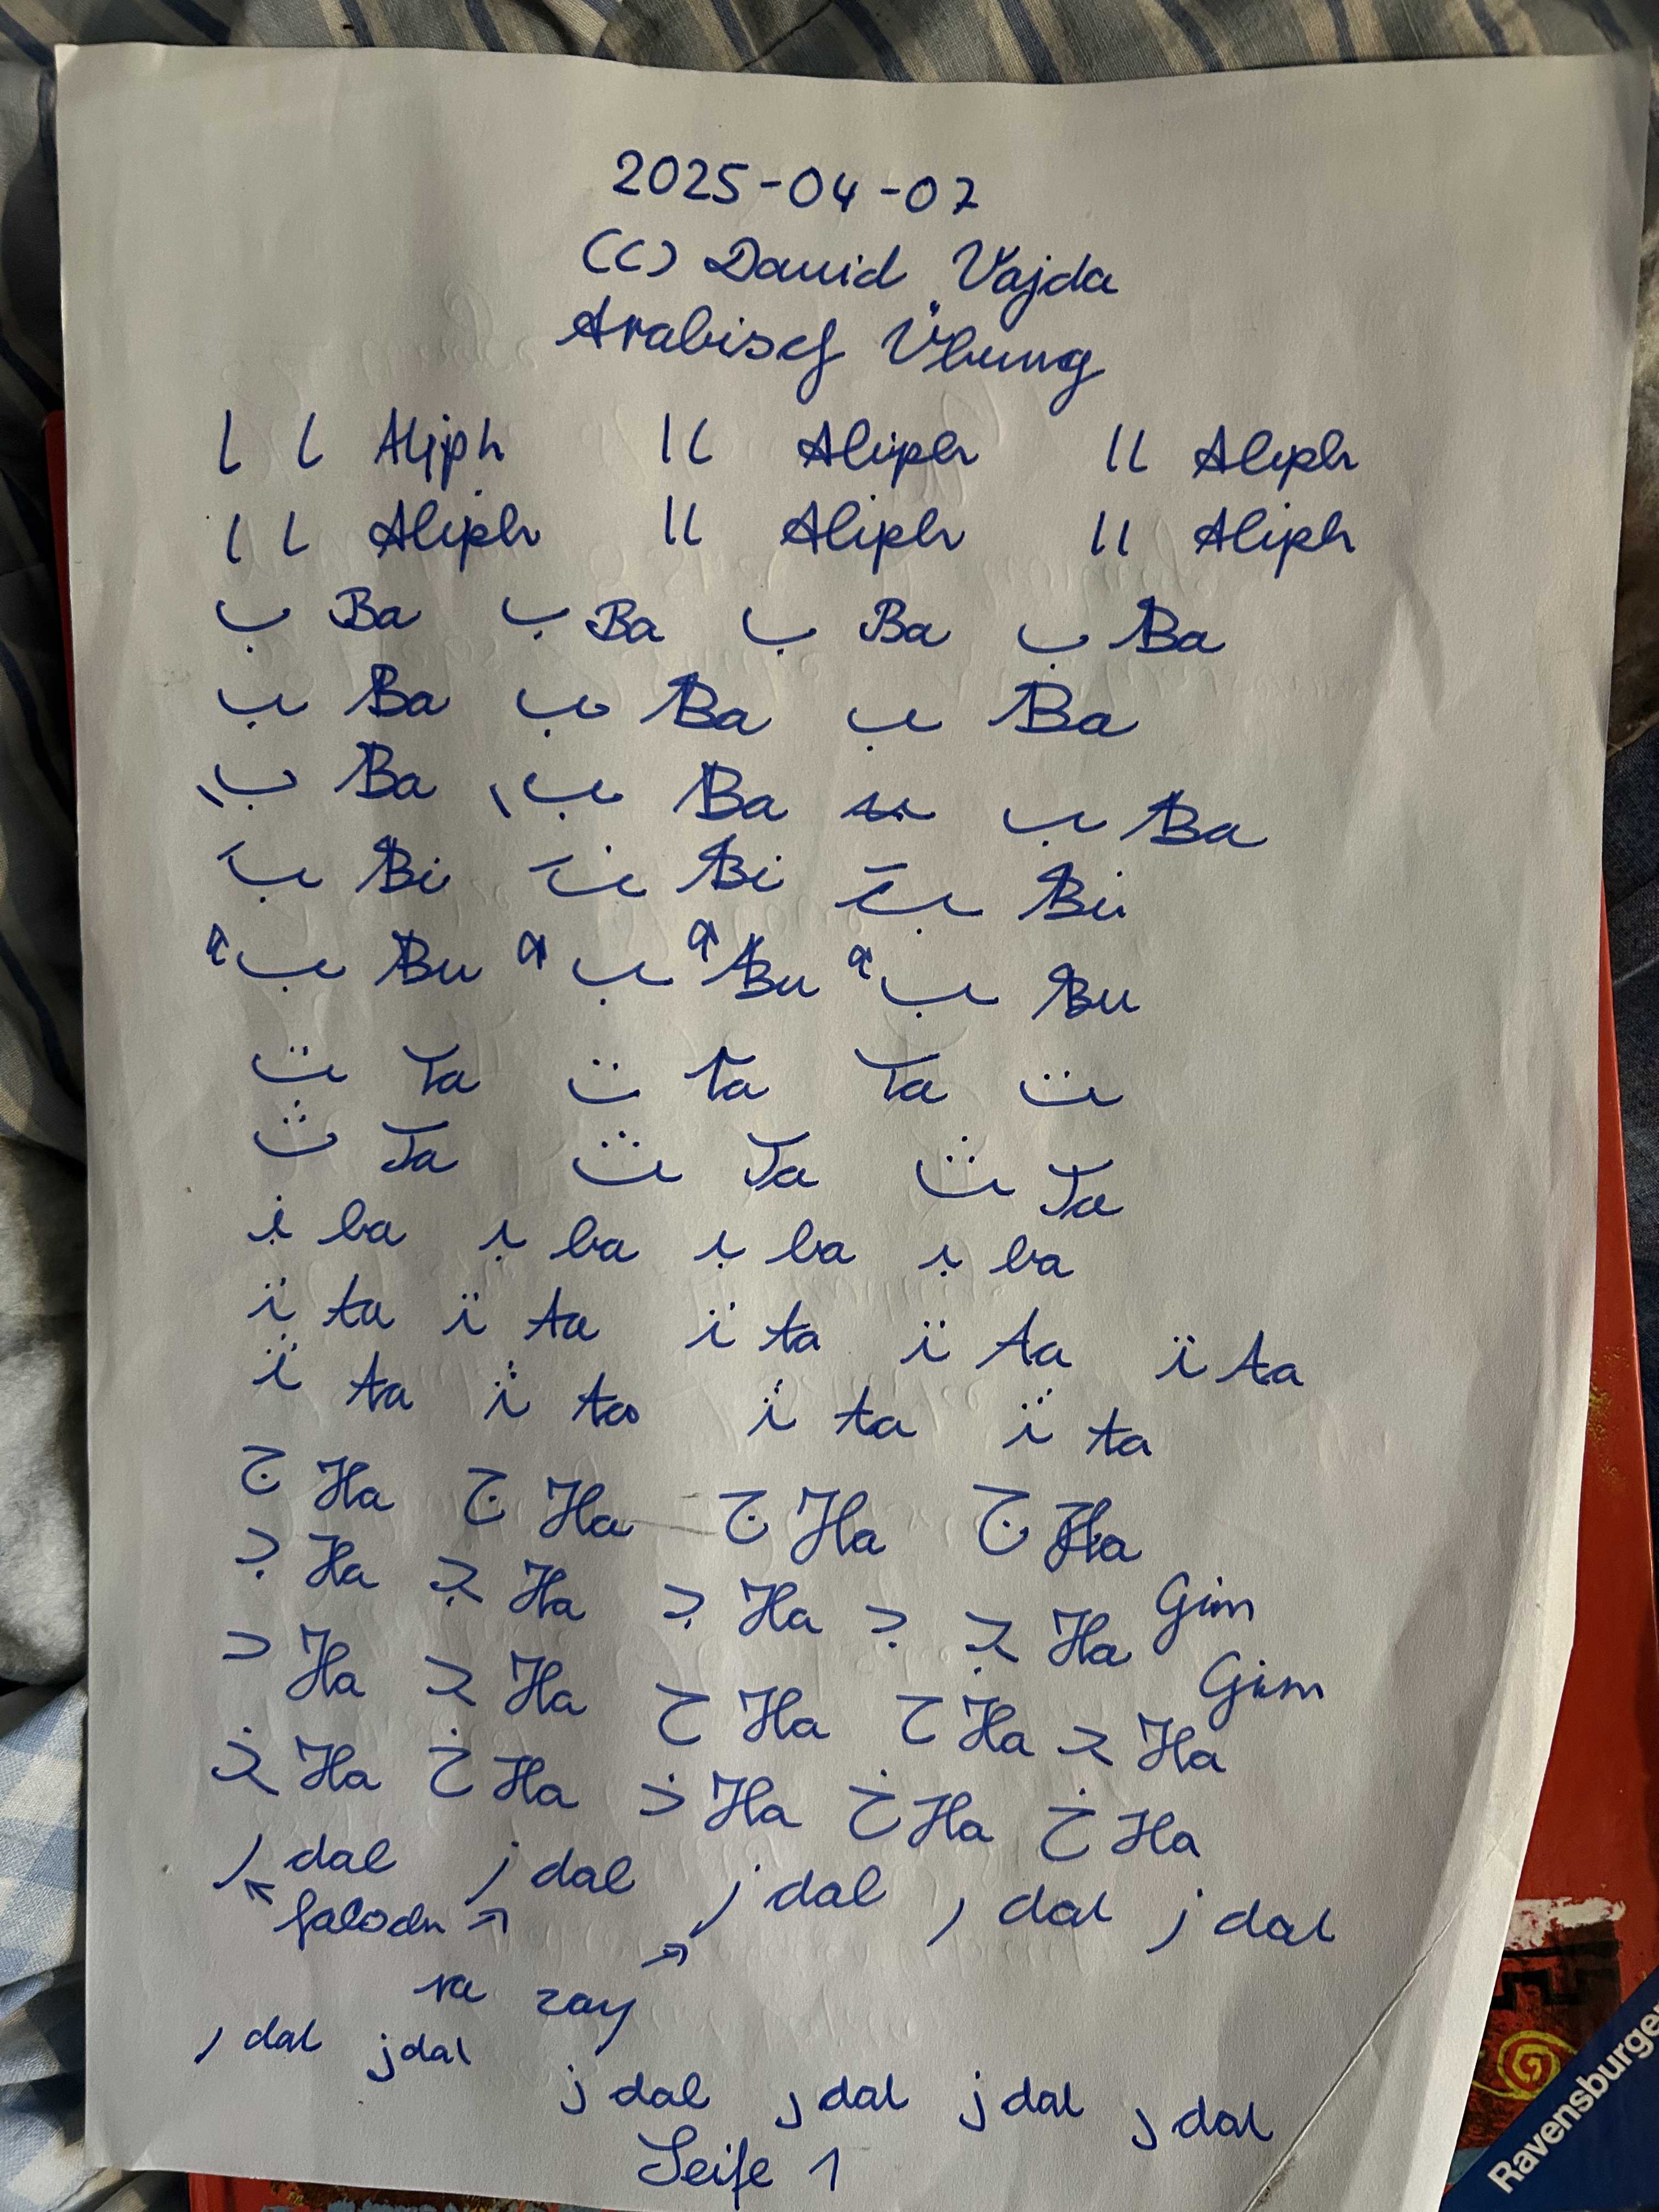 2025-04-07
(C) David Vajda
Arabisch Übung
ا ا Aliph ا ا Aliph ا ا Aliph
ا ا Aliph ا ا Aliph ا ا Aliph
ب Ba ب Ba ب Ba ب Ba
ب Ba ب Ba ب Ba
ب Ba ب Ba ب Ba
ب Bi ب Bi ب Bi
ب Bu ب Bu ب Bu
ت Ta ت Ta Ta ت
ث Ta ث Ta ث Ta
ﺑ ba ﺑ ba ﺑ ba ﺑ ba
ﺗ ta ﺗ ta ﺗ ta ﺗ ta ﺗ ta
ﺛ ta ﺛ ta ﺛ ta ﺛ ta
ج Ha ج Ha ج Ha ج Ha
ﺟ Ha ﺟ Ha ﺟ Ha ﺟ ﺟ Ha Gim
ﺣ Ha ﺣ Ha ح Ha ح Ha ﺣ Ha Gim
ﺧ Ha خ Ha ﺧ Ha خ Ha خ Ha
ر dal ز dal ز dal ر dal ز dal
ra zay
ر dal ز dal ز dal ر dal ز dal ر dal
Seife 1
Ravensburger